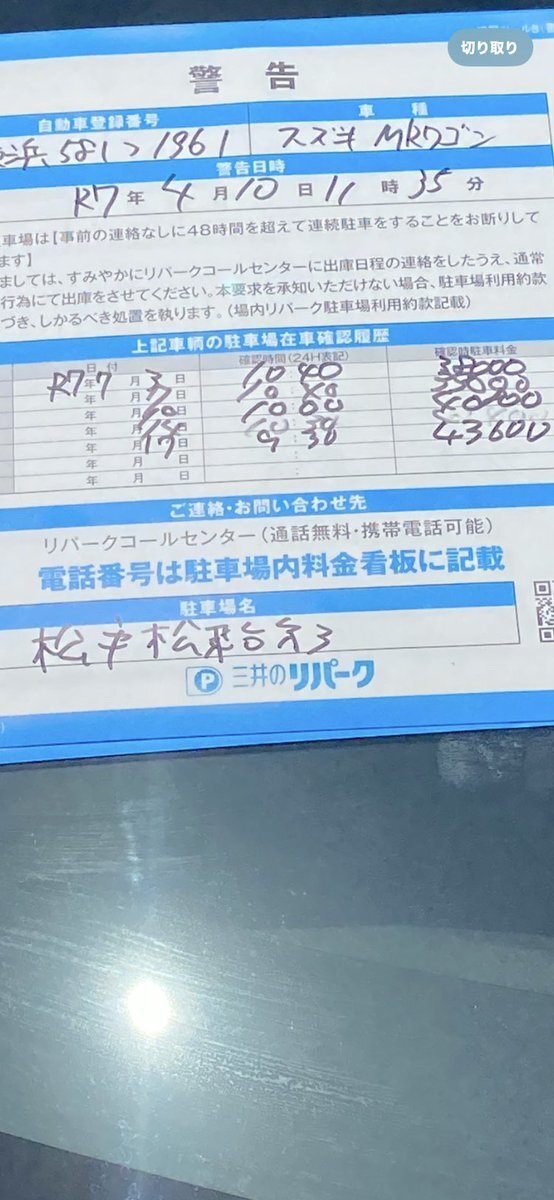 切り取り
警告
自動車登録番号 車種
浜 581 つ 1961 スズキ MRワゴン
警告日時
R7年 4月 10日 11時 35分
車場は【事前の連絡なしに48時間を超えて連続駐車をすることをお断りして
ます】
ましては、すみやかにリパークコールセンターに出庫日程の連絡をしたうえ、通常
行為にて出庫をさせてください。本要求を承知いただけない場合、駐車場利用約款
づき、しかるべき処置を執ります。(場内リパーク駐車場利用約款記載)
上記車輌の駐車場在車確認履歴
日付 確認時間(24H表記) 確認時駐車料金
R7年 7月 3日 10:40
年 月 7日
年 月 10日 10:00 40900
年 月 日
年 月 17日 9:30 43600
年 月 日
年 月 日
ご連絡・お問い合わせ先
リパークコールセンター(通話無料・携帯電話可能)
電話番号は駐車場内料金看板に記載
駐車場名
松戸松飛台第3
P 三井のリパーク